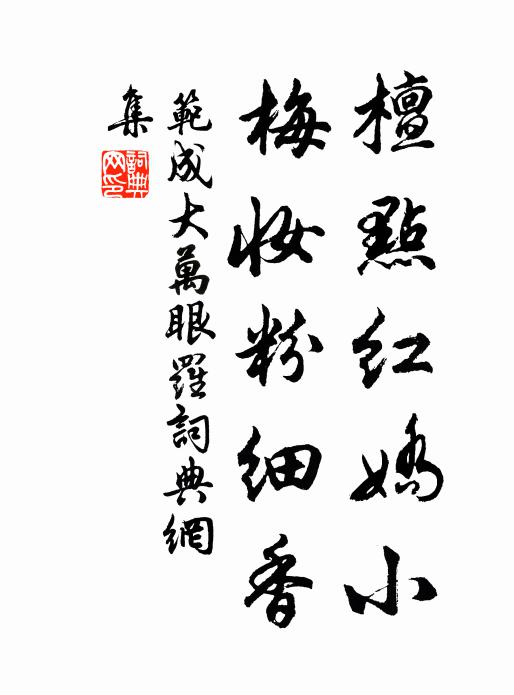 檀點紅嬌小
梅妝粉細香
範成大萬眼羅詞典網
集
詞典
网印